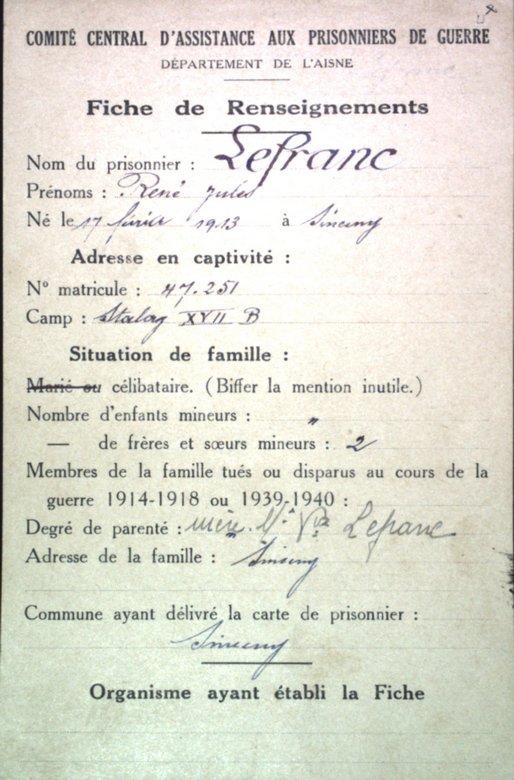 COMITÉ CENTRAL D'ASSISTANCE AUX PRISONNIERS DE GUERRE
DÉPARTEMENT DE L'AISNE
Fiche de Renseignements
Nom du prisonnier : Lefranc
Prénoms : René Jules
Né le 17 février 1913 à Sinceny
Adresse en captivité :
N° matricule : 47.251
Camp : Stalag XVII B
Situation de famille :
Marié ou célibataire. (Biffer la mention inutile.)
Nombre d'enfants mineurs : "
— de frères et sœurs mineurs : 2
Membres de la famille tués ou disparus au cours de la
guerre 1914-1918 ou 1939-1940 :
Degré de parenté : mère. Mme Vve Lefranc
Adresse de la famille : Sinceny
Commune ayant délivré la carte de prisonnier :
Sinceny
Organisme ayant établi la Fiche